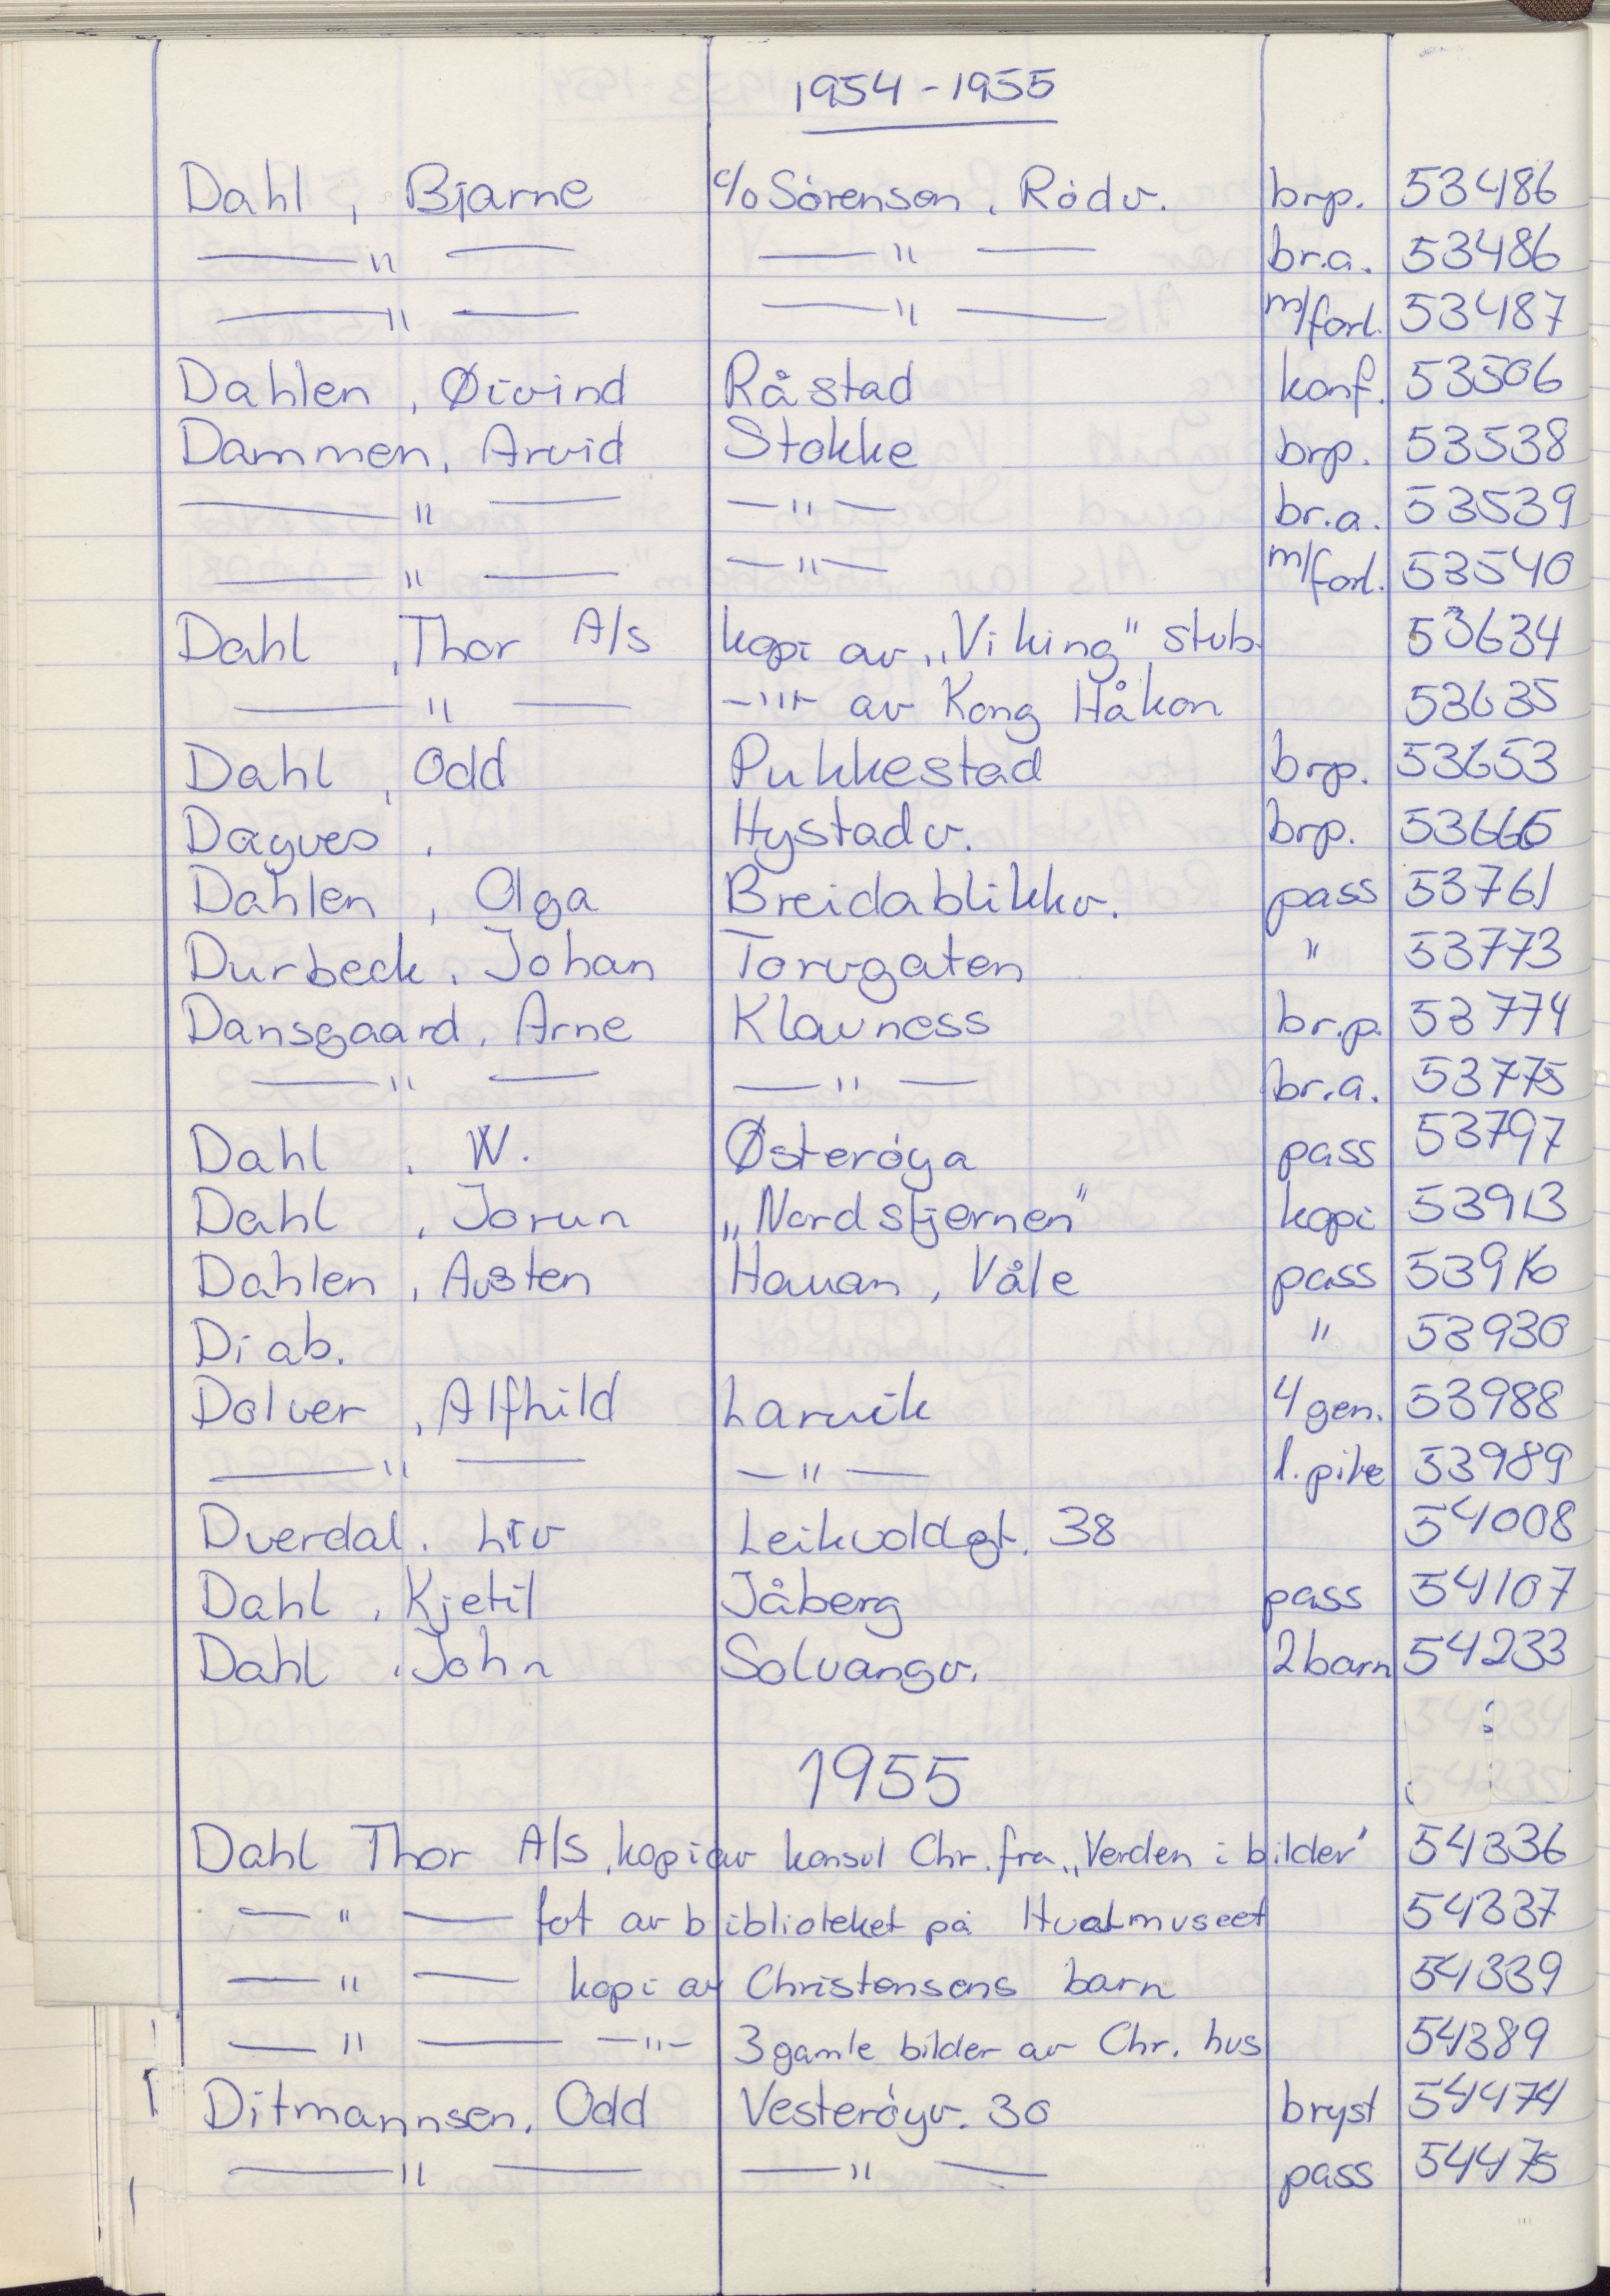 1954 - 1955
Dahl , Bjarne c/o Sörensen , Rödv. brp. 53486
—— " —— —— " —— br.a. 53486
—— " —— —— " —— m/forl. 53487
Dahlen , Øivind Råstad konf. 53506
Dammen , Arvid Stokke brp. 53538
—— " —— — " — br.a. 53539
—— " —— — " — m/forl. 53540
Dahl , Thor A/s kopi av „Viking" stub. 53634
—— " —— — " — av Kong Håkon 53635
Dahl , Odd Pukkestad brp. 53653
Dagves , Hystadv. brp. 53665
Dahlen , Olga Breidablikkv. pass 53761
Durbeck , Johan Torvgaten " 53773
Dansgaard , Arne Klavness br.p. 53774
—— " —— —— " —— br.a. 53775
Dahl , W. Østeröya pass 53797
Dahl , Jorun „Nordstjernen" kopi 53913
Dahlen , Austen Hauan , Våle pass 53916
Diab. " 53930
Dolver , Alfhild Larvik 4 gen. 53988
—— " —— — " — l. pike 53989
Dverdal , Liv Leikvoldgt. 38 54008
Dahl , Kjetil Jåberg pass 54107
Dahl , John Solvangv. 2 barn 54233
1955
Dahl Thor A/S , kopi av konsul Chr. fra „Verden i bilder" 54336
— " —— fot av biblioteket på Hvalmuseet 54337
— " —— kopi av Christensens barn 54339
— " —— — " — 3 gamle bilder av Chr. hus 54389
Ditmannsen , Odd Vesteröyv. 30 bryst 54474
—— " —— —— " —— pass 54475